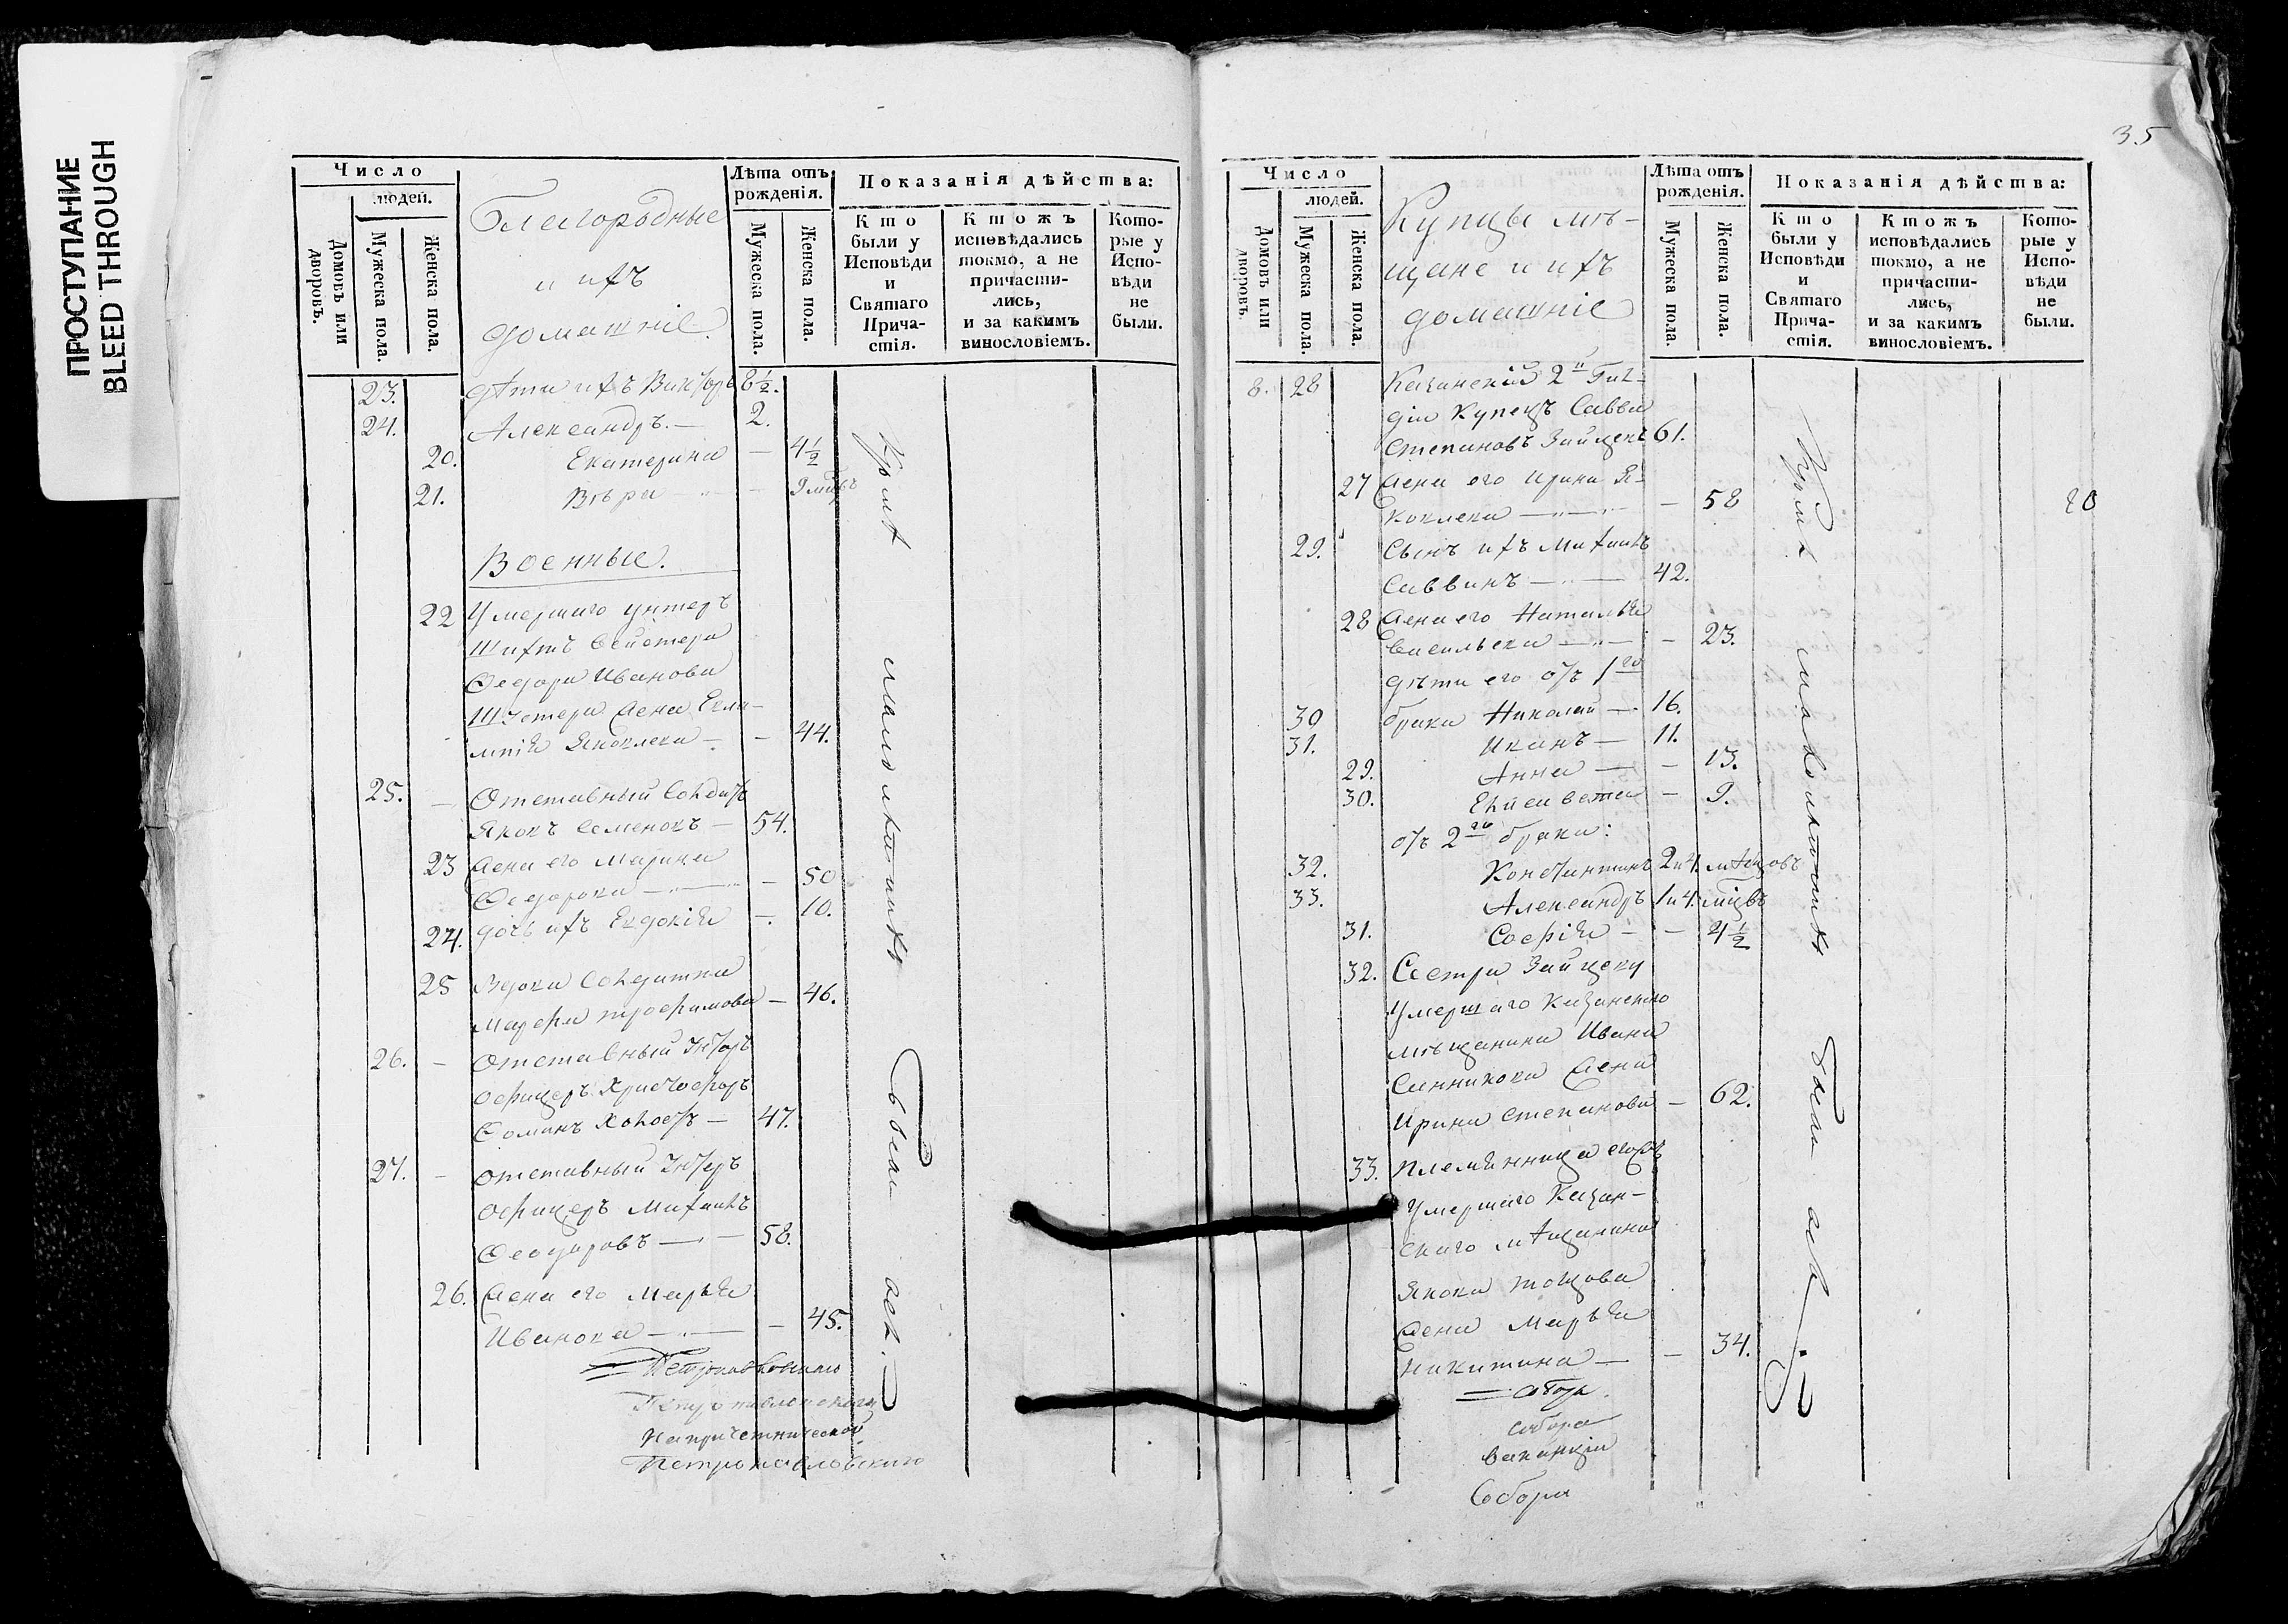 ПРОСТУПАНИЕ
BLEED THROUGH
Число
людей.
Домовъ или дворовъ.
Мужеска пола.
Женска пола.
Благородные
и ихъ
домашніе.
Лѣта отъ рожденія.
Мужеска пола.
Женска пола.
Показанія дѣйства:
Кто были у Исповѣди и Святаго Причастія.
Ктожъ исповѣдались токмо, а не причастились, и за какимъ винословіемъ.
Которые у Исповѣди не были.
23. дѣти ихъ Викторъ 8½.
24. Александръ. — 2.
20. Екатерина — 4½
21. Вѣра — — 9 мцвъ
Военные.
22 Умершаго унтеръ
Шихтъ
Федора Иванова
жена
Яковлева — — 44.
25. — Отставный Солдатъ
Яковъ Семеновъ — 54.
23 жена его Марина
Федорова — — 50
24. дочь ихъ Евдокія — 10.
25 Вдова Солдатка
Марфа Трофимова — 46.
26. — Отставный Унтеръ
офицеръ Христофоръ
47.
27. — отставный Унтеръ
офицеръ Михаилъ
Феодоровъ — — 58.
26. жена его Марья
Иванова — — 45.
Петропавловскаго
Петропавловскаго
На причетнической
Петропавловскаго
35
Число
людей.
Домовъ или дворовъ.
Мужеска пола.
Женска пола.
Купцы мѣ-
щане и ихъ
домашніе
Лѣта отъ рожденія.
Мужеска пола.
Женска пола.
Показанія дѣйства:
Кто были у Исповѣди и Святаго Причастія.
Ктожъ исповѣдались токмо, а не причастились, и за какимъ винословіемъ.
Которые у Исповѣди не были.
8. 28 Казанскій 2й Гил-
діи Купецъ Савва
Степановъ Зайцевъ 61.
27 жена его Ирина Я-
ковлева — — 58
29. Сынъ ихъ Михаилъ
Саввинъ — — 42.
28 жена его Наталья
Васильева — — 23.
дѣти его отъ 1го
30 брака Николай — 16.
31. Иванъ — 11.
29. Анна — — 13.
30. Елисавета — 9.
отъ 2го брака:
32. Константинъ 2 и 4. мѣсяцовъ
33. Александръ 1 и 4. мцвъ
31. Софія — — 4½
32. Сестра Зайцеву
Умершаго Казанскаго
мѣщанина Ивана
Санникова жена
Ирина Степанова — 62.
33. племянница
Умершаго Казан-
скаго мѣщанина
Якова
жена Марья
Никитина — — 34.
Собора
вакансіи
Собора